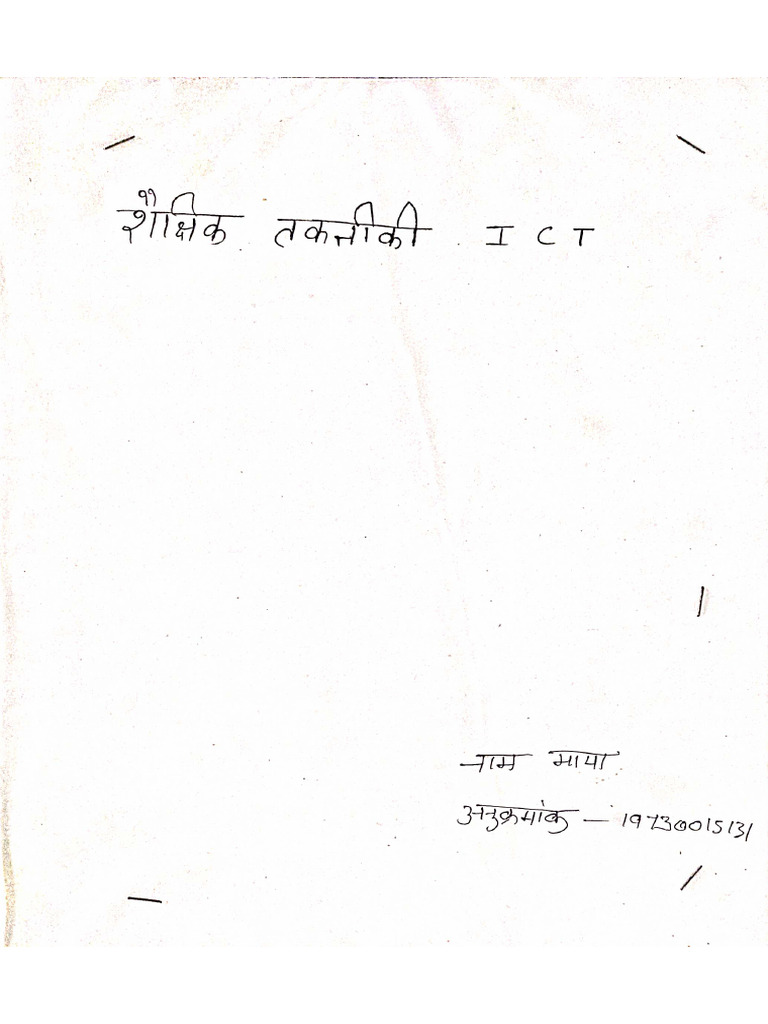 शैक्षिक तकनीकी ICT
नाम माया
अनुक्रमांक – 19730015131